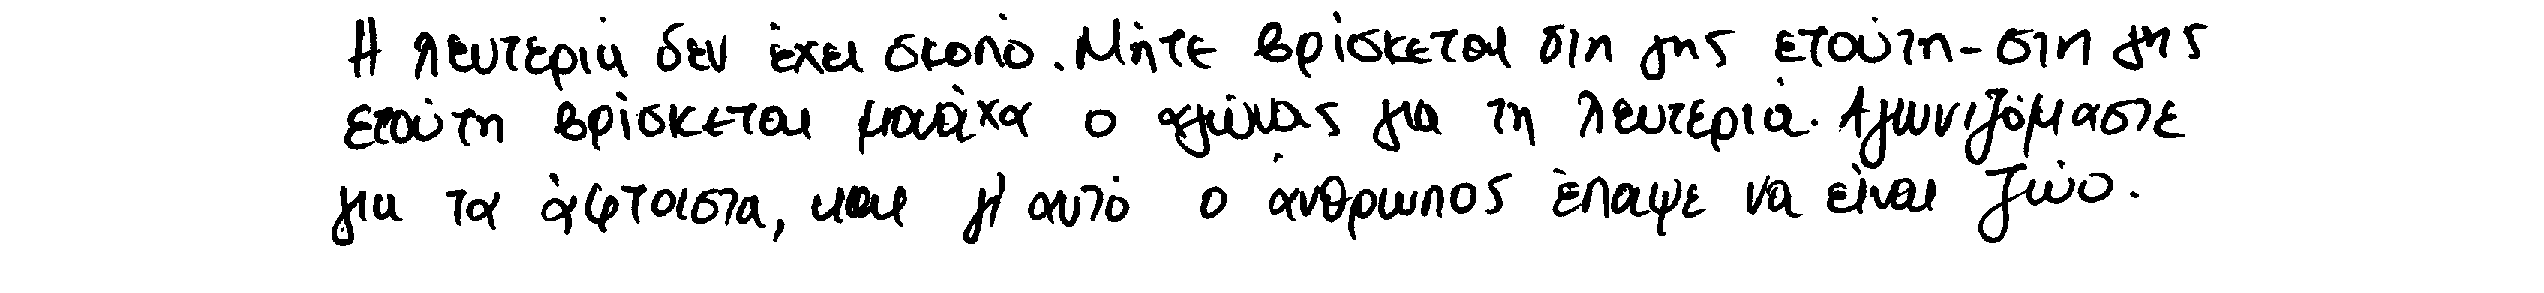 Η λευτεριά δεν έχει σκοπό. Μήτε βρίσκεται στη γης ετούτη - στη γης
ετούτη βρίσκεται μονάχα ο αγώνας για τη λευτεριά. Αγωνιζόμαστε
για τα άφταιστα, και γι' αυτό ο άνθρωπος έπαψε να είναι ζώο.